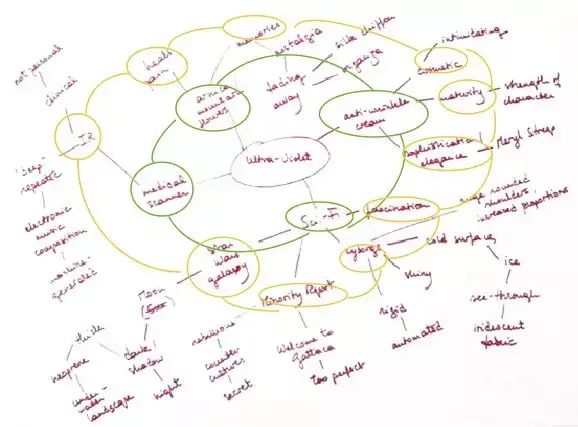 memories
nostalgia
silk chiffon
organza
fading
away
intimidating
cosmetic
not personal
clinical
heals
pain
arnica
mountain
flowers
anti-wrinkle
cream
maturity
strength of
character
I.R.
Ultra-Violet
sophistication
elegance
Meryl Streep
"beep"
repeatic
medical
scanner
electronic
music
composition
machine-
generated
Sci-Fi
fascination
huge rounded
shoulders,
increased proportions
star
wars
galaxy
cyborgs
cold surfaces
ice
shiny
see-through
iridescent
fabric
Moon
Minority Report
rigid
automated
thick
neoprene
under-
water
landscape
dark
shadow
night
rebellious
counter
cultures
secret
Welcome to
Gattaca
too perfect